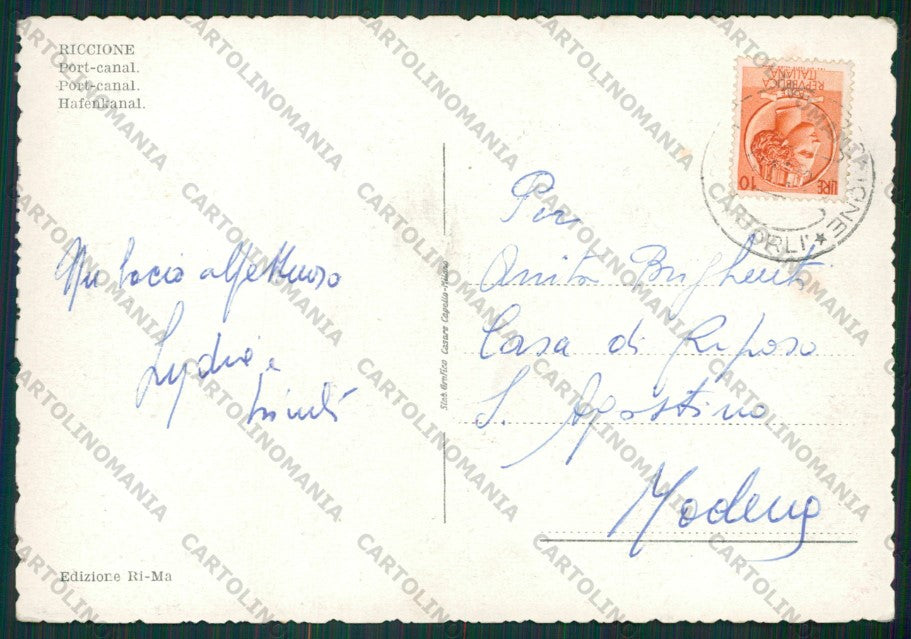 RICCIONE
Port-canal.
Port-canal.
Hafenkanal.
REPVBBLICA
ITALIANA
LIRE 10
RICCIONE
FORLI'
Un bacio affettuoso
Lydia e
Stab. Grafico Cesare Capello-Milano
Anita Brighenti
Casa di Riposo
S. Agostino
Modena
Edizione Ri-Ma
CARTOLINOMANIA